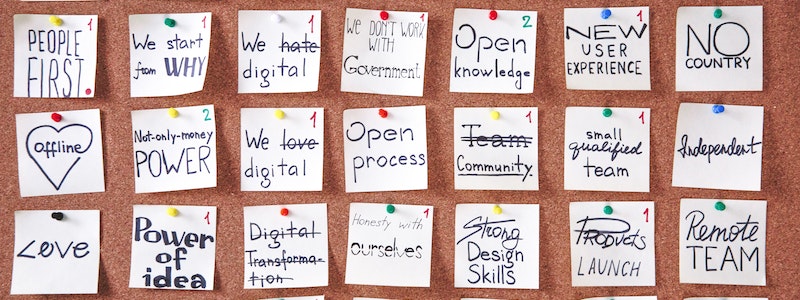 PEOPLE
FIRST. 1
We start 1
from WHY
We hate 1
digital
WE DON'T WORK 1
WITH
Government
Open 2
knowledge
NEW 1
USER
EXPERIENCE
NO
COUNTRY
offline
Not-only-money 2
POWER
We love 1
digital
Open 1
process
Team 1
Community
small 1
qualified
team
Independent
Love
Power 1
of
idea
Digital
Transforma-
tion
Honesty with 1
ourselves
Strong
Design
Skills
Products 1
LAUNCH
Remote
TEAM